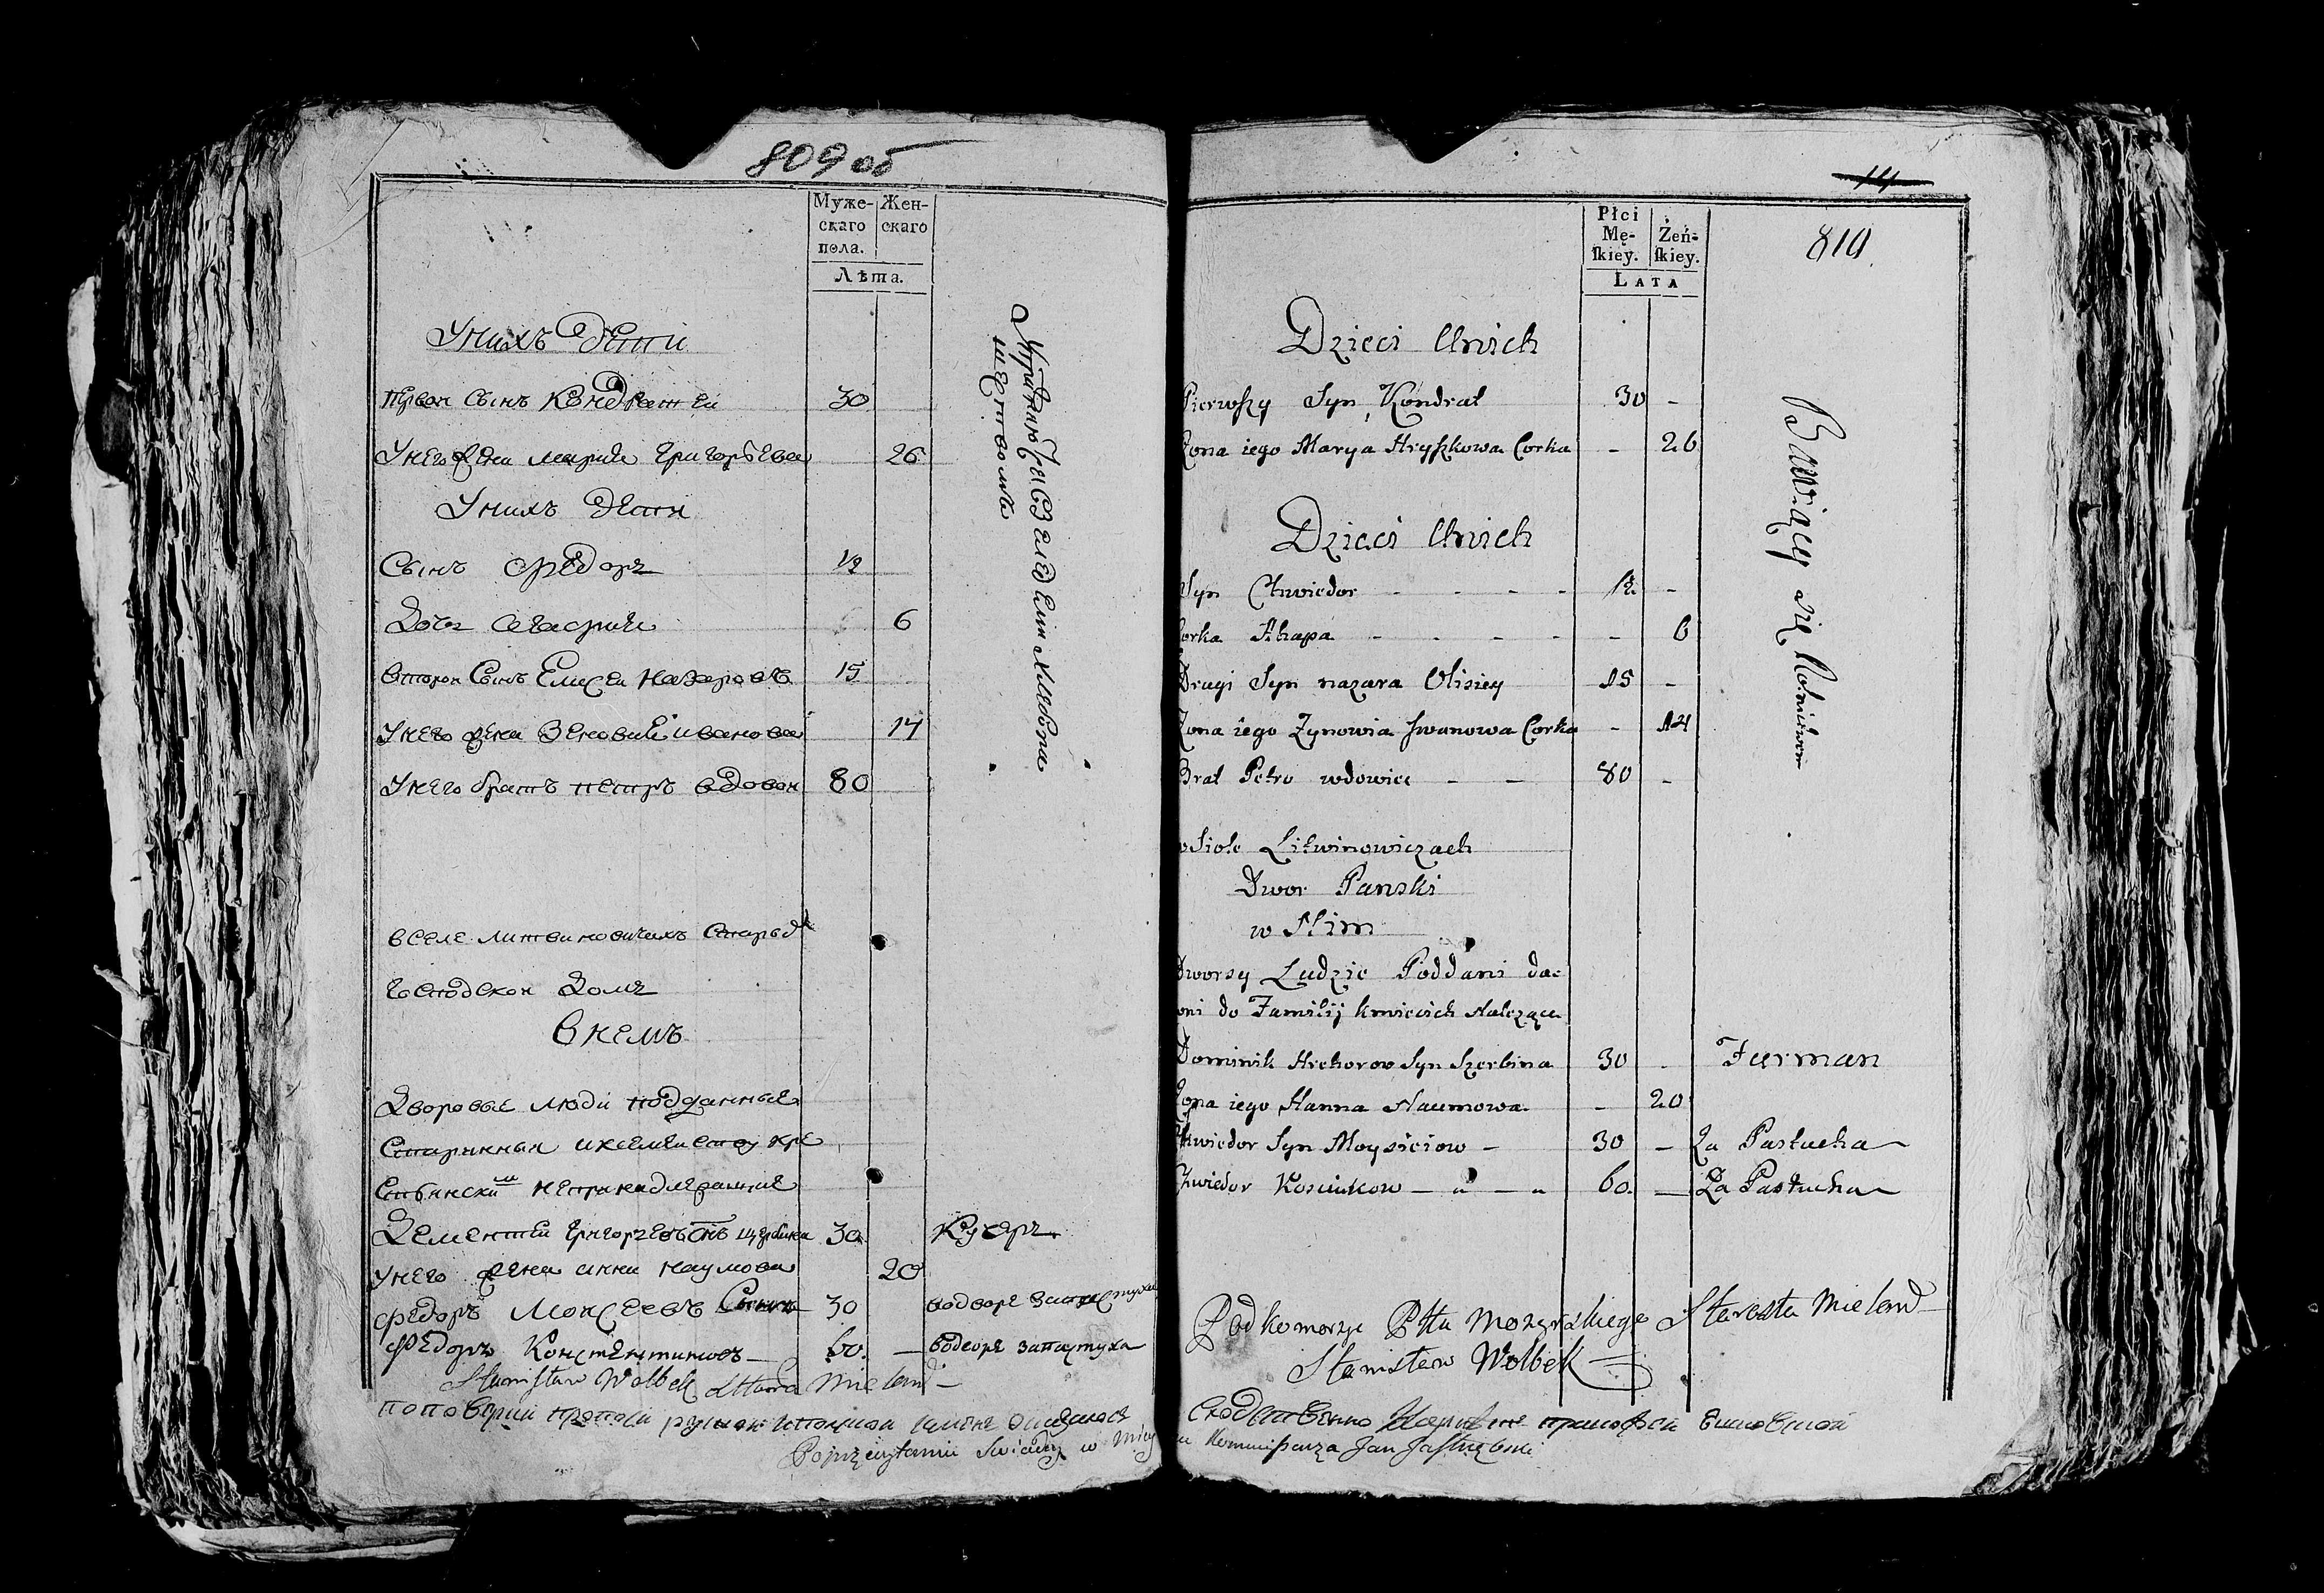 809 об
Муже-
скаго
пола.
Жен-
скаго
Лѣта.
У нихъ дети
первои сынъ Кондратеи 30
У него жена мария Григорьева 26
У нихъ дети
Сынъ Федоръ 12
Дочь 6
второи Сынъ Елисеи Назаровъ 15
У него жена Зеновия иванова 14
У него братъ петръ вдовои 80
в селе литвиновичахъ
господскои домъ
В немъ
Дворовые люди подданные
Старинныя
непринадлежащие
Дементеи Григорьевъ Снъ щербина 30 Кучеръ
У него жена анна наумова 20
Федоръ Моисеевъ Сынъ 30 водворе запастуха
Федоръ Константиновъ 60. водворе запастуха
Stanisław Wolbek Mielend
Poprzeczytaniu Swiadczy w Miey
Płci
Mę-
ſkiey.
Żeń-
ſkiey.
LATA
810
Dzieci Unich
Pierwszy Syn Kondrat 30 -
Zona iego Marya Hryszkowa Corka - 26
Dzieci Unich
Syn Chwiedor - - - - 12 -
Corka Ahapa - - - - - 6
Drugi Syn nazara Olisiey 15 -
Zona iego Zynowia Jwanowa Corka - 14
Brat Petro wdowiec - - 80 -
Bawiący się Rolnictwem
w Siole Litwinowiczach
Dwor Panski
w Nim
Dworsy Ludzie Poddani da-
wni do Familij kmiecich Nalezący
Dominik Hrehorow Syn Szerbina 30 - Furman
Zona iego Hanna Naumowa - 20
Chwiedor Syn Moysieiow - 30 - Za Pastucha
Chwiedor Kosciukow - " - " 60. - Za Pastucha
Podkomorzy Pttu Mozyrskiego Starosta Mielend
Stanisław Wolbek
Kommissarza Jan